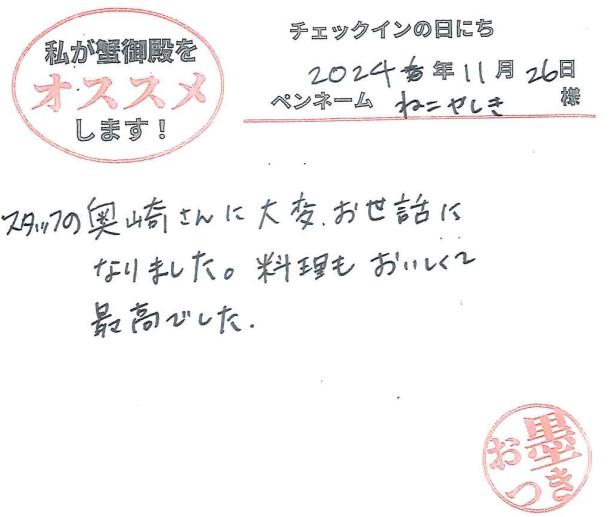 私が蟹御殿を
オススメ
します!
チェックインの日にち
2024年11月26日
ペンネーム ねこやしき 様
スタッフの奥崎さんに大変、お世話に
なりました。料理もおいしくて
最高でした.
お墨つき